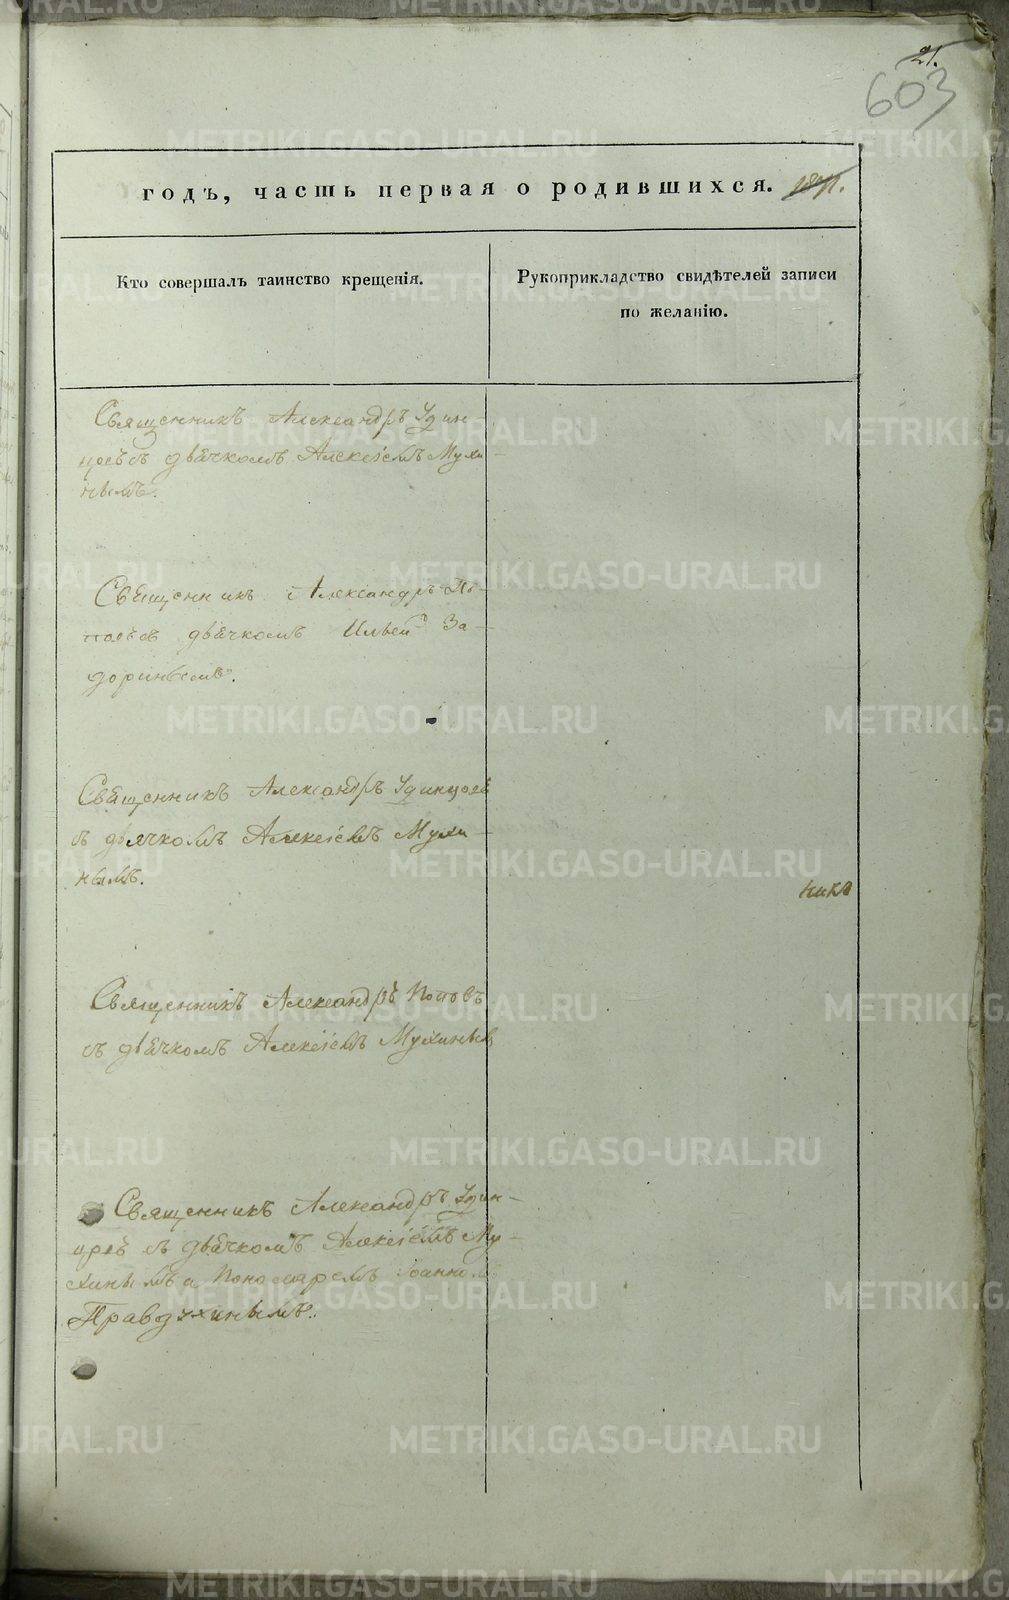 21.
603
годъ, часть первая о родившихся.
Кто совершалъ таинство крещенія.
Рукоприкладство свидѣтелей записи
по желанію.
Священникъ Александръ Удин-
цовъ съ дьячкомъ Алексіемъ Мухи-
нымъ.
Священникъ Александръ По-
повъ съ дьячкомъ Ильей За-
доринымъ.
Священникъ Александръ Удинцовъ
съ дьячкомъ Алексіемъ Мухи-
нымъ.
Священникъ Александръ Поповъ
съ дьячкомъ Алексіемъ Мухинымъ
Священникъ Александръ Удин-
цовъ съ дьячкомъ Алексіемъ Му-
хинымъ и Пономаремъ Іоанномъ
METRIKI.GASO-URAL.RU